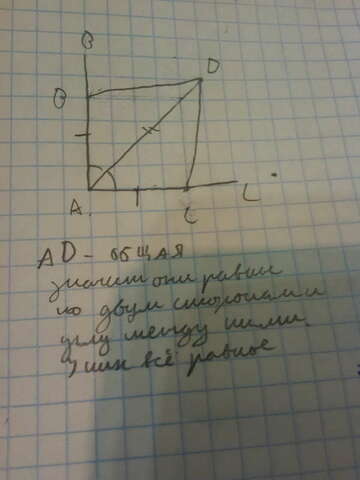 В
В D
А. С L
АD - общая
значит они равны
по двум сторонам и
углу между ними.
У них всё равное